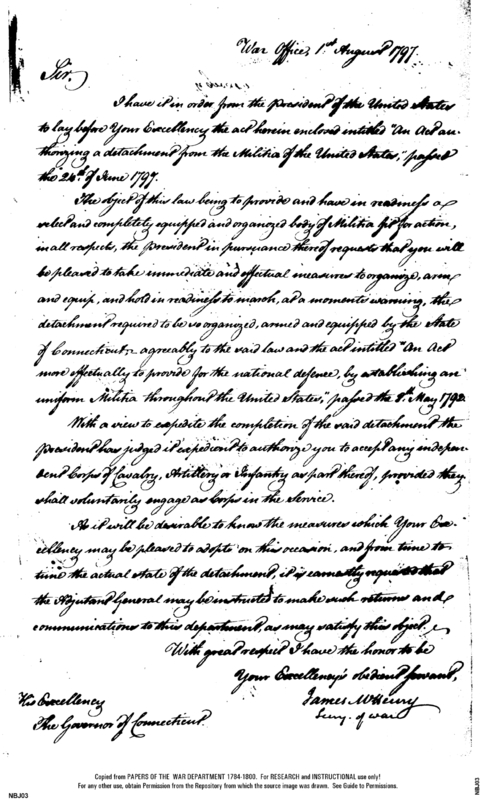 War Office, 1st August 1797.
Sir,
I have it in order from the President of the United States
to lay before Your Excellency the act herein enclosed intitled "An Act au-
thorizing a detachment from the Militia of the United States," passed
the 24th of June 1797.
The object of this law being to provide and have in readiness a
select and completely equipped and organized body of Militia fit for action,
in all respects, the President in pursuance thereof requests that you will
be pleased to take immediate and effectual measures to organize, arm
and equip, and hold in readiness to march, at a moments warning, the
detachment required to be so organized, armed and equipped by the State
of Connecticut, agreeably to the said law and the act intitled "An Act
more effectually to provide for the national defence, by establishing an
uniform Militia throughout the United States," passed the 8th May 1792.
With a view to expedite the completion of the said detachment the
President has judged it expedient to authorize you to accept any indepen-
dent Corps of Cavalry, Artillery or Infantry as part thereof, provided they
shall voluntarily engage as Corps in the Service.
As it will be desirable to know the measures which Your Ex-
cellency may be pleased to adopt on this occasion, and from time to
time the actual state of the detachment, it is earnestly requested that
the Adjutant General may be instructed to make such returns and
communications to this department, as may satisfy this object.
With great respect I have the honor to be
Your Excellency's obedient servant,
James McHenry
Secy. of war
His Excellency
The Governor of Connecticut.
Copied from PAPERS OF THE WAR DEPARTMENT 1784-1800. For RESEARCH and INSTRUCTIONAL use only!
For any other use, obtain Permission from the Repository from which the source image was drawn. See Guide to Permissions.
NBJ03
NBJ03